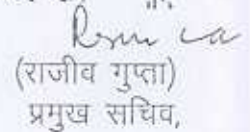 (राजीव गुप्ता)
प्रमुख सचिव,